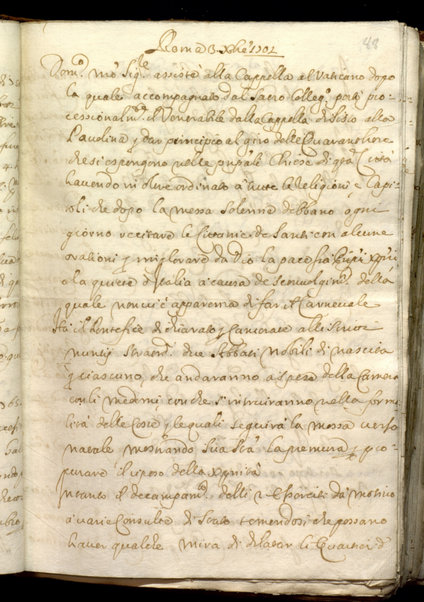 48
Roma 3 Xbre 1701
Dom.ª mª Sig.re assistè alla Cappella al Vaticano dopo
la quale accompagnato dal Sacro Colleg.º portò pro-
cessionalm.te il Venerabile dalla Cappella di Sisto alla
Paolina p dar principio al giro delle Quarant'hore
che si espongono nelle pnpali Chiese di qta Città
havendo in oltre ordinato a tutte le Religioni, e Capi-
toli che dopo la messa solenne debbano ogni
giorno recitare le Litanie de Santi con alcune
orationi p implorare da Dio la pace fra Prpi Xpni
e la quiete d'Italia a causa de sconvolgim.ti della
quale non vi è apparenza di far il Carnevale
Hà il Pontefice dichiarato p Camerate alli
nuntij straord.ri due Abbati nobili di nascita
p ciascuno, che andaranno a spese della Camera
con li medemi, con che s'instruiranno nella for-
lità delle Corti p le quali seguirà la mossa verso
natale mostrando Sua Stà la premura p pro-
curare il riposo della Xpnità
Intanto il decampam.to delli 2 Eserciti dà motivo
a varie Consulte di Stato temendosi che possano
haver qualche mira di dilatar li Quartieri d